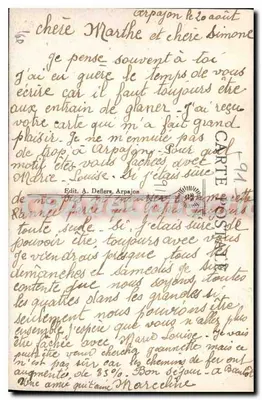 Arpajon le 20 août
chère Marthe et chère Simone
Je pense souvent à toi
J'ai eu guère le temps de vous
écrire car il faut toujours être
aux entrain de glaner. J'ai reçu
votre carte qui m'a fait grand
plaisir. Je ne m'ennuie pas
de trop à Arpajon. Pour quel
motif êtes vous fachées avec
Marie-Louise. Si j'étais sûre
Edit. A. Defiers, Arpajon
CARTE POSTALE
toute seule. Si j'étais sûre de
pouvoir être toujours avec vous
je viendrais presque tous les
dimanches et samedis je suis
contente que nous soyons toutes
les quatres dans les grandes si
seulement nous pouvions être
ensemble j'espère que vous n'allez plus
être fachée avec Marie Louise. Je vais
peut être venir chercher Jeannette mais ce
n'est pas sûr car les chemins de fer ont
augmenté de 35%. Bon séjour à
Une amie qui t'aime Marceline